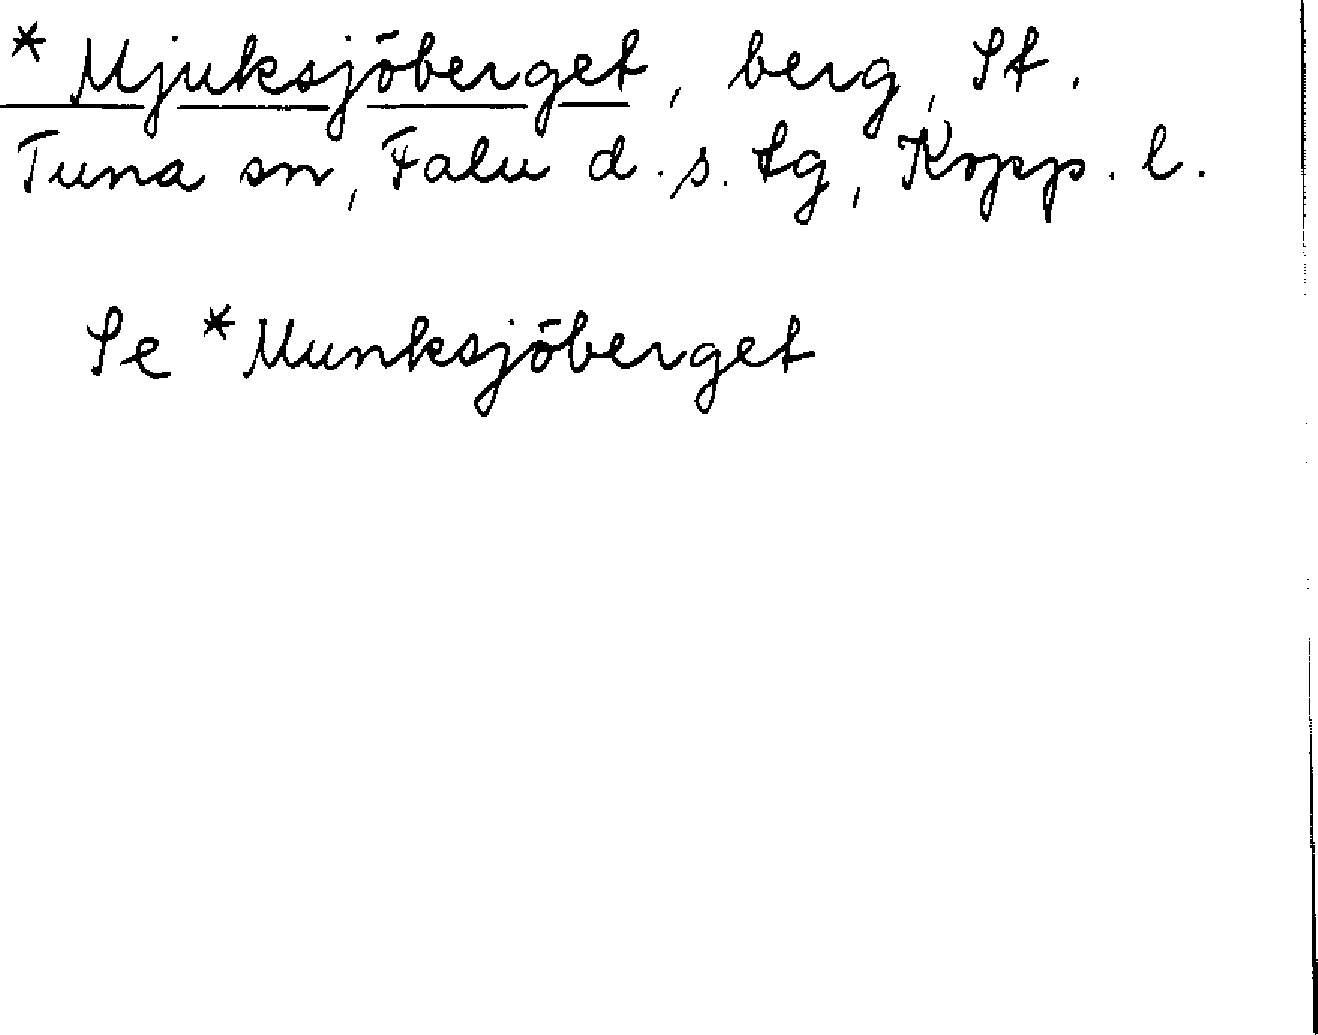 * Mjuksjöberget, berg, St.
Tuna sn, Falu d.s. tg, Kopp. l.
Se * Munksjöberget